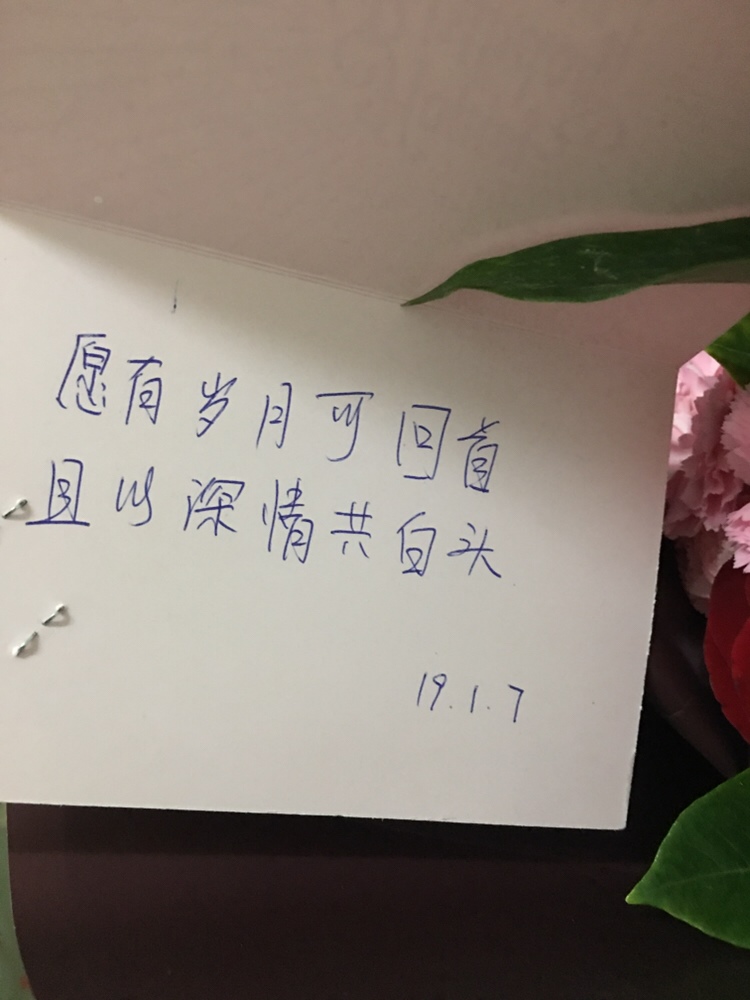 愿有岁月可回首
且以深情共白头
19.1.7